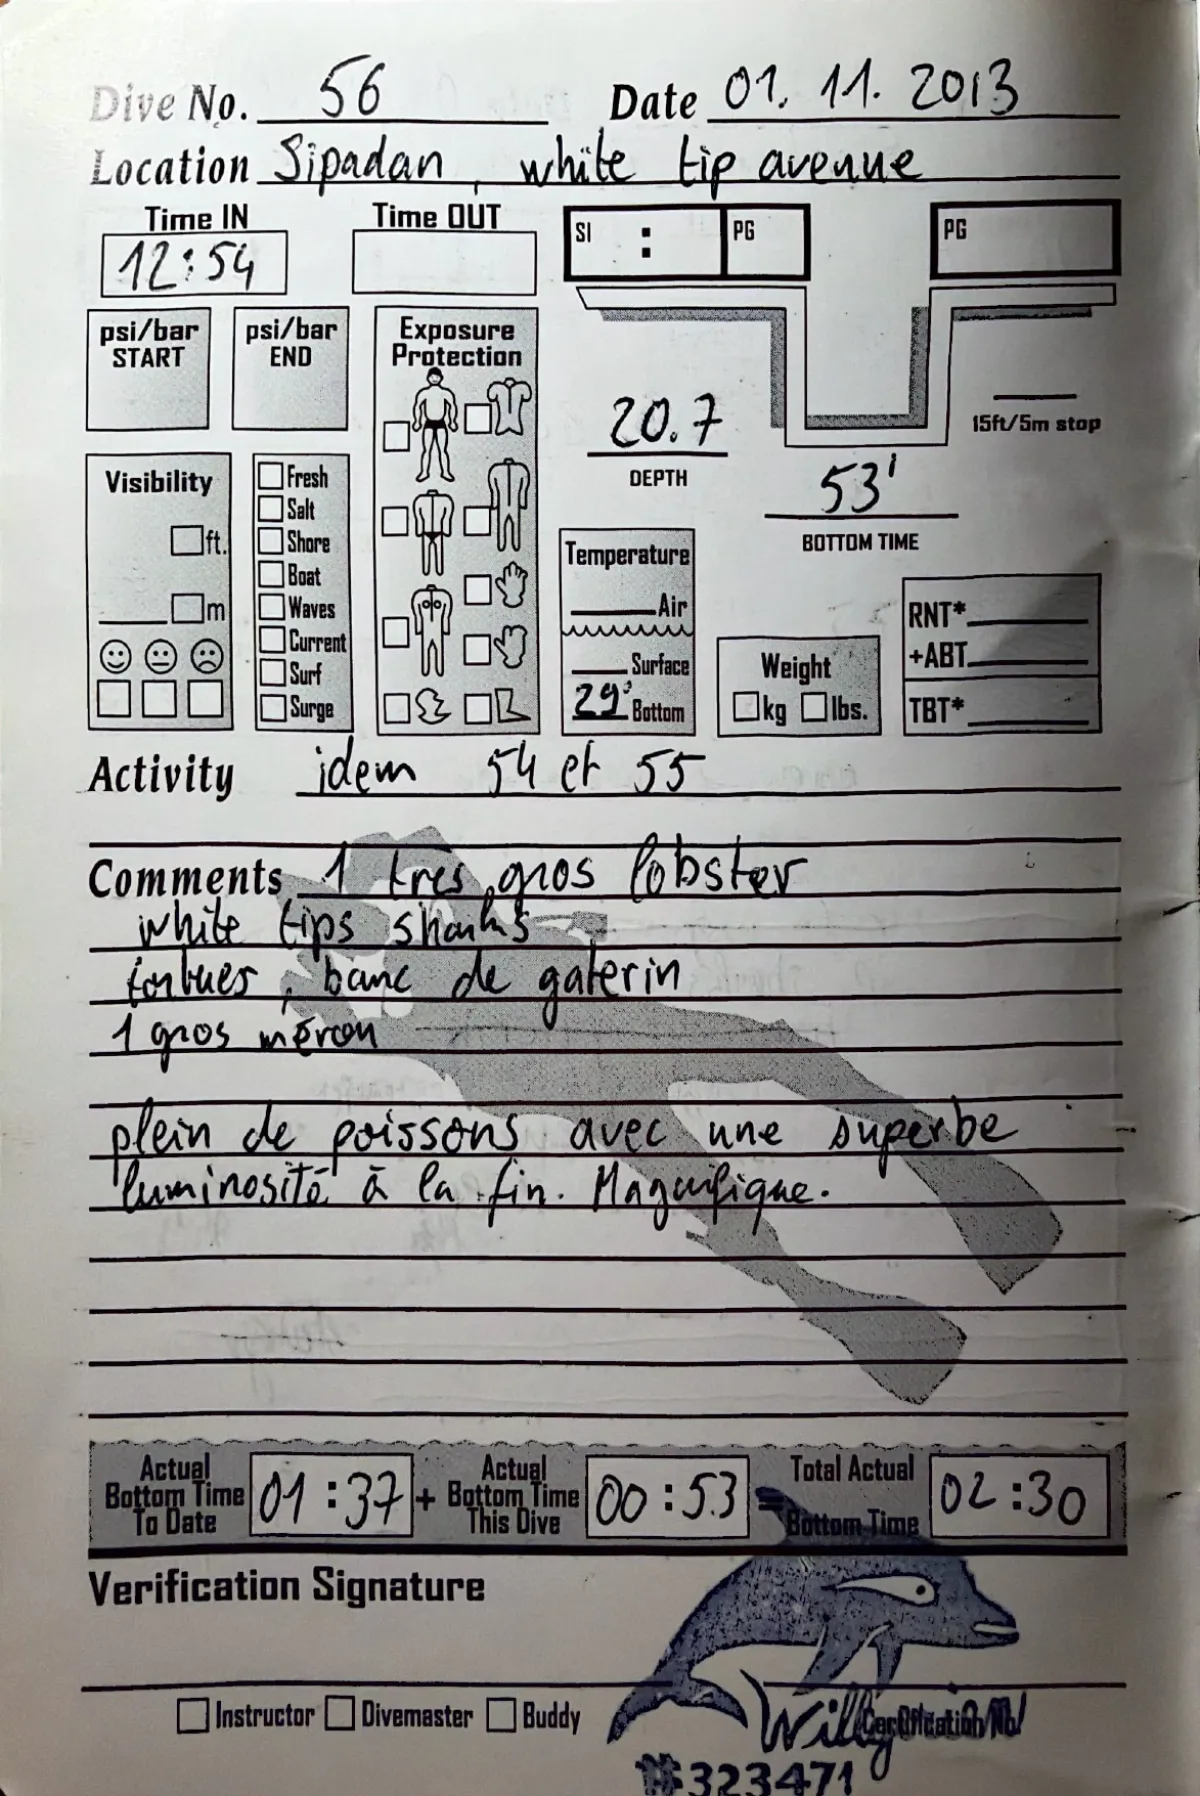 Dive No. 56 Date 01. 11. 2013
Location Sipadan, white tip avenue
Time IN Time OUT
12:54
SI : PG PG
psi/bar START psi/bar END Exposure Protection
20.7
DEPTH
15ft/5m stop
53'
BOTTOM TIME
Visibility
ft.
m
Fresh
Salt
Shore
Boat
Waves
Current
Surf
Surge
Temperature
Air
Surface
29° Bottom
Weight
kg lbs.
RNT*
+ABT
TBT*
Activity idem 54 et 55
Comments 1 tres gros lobster
white tips sharks
tortues, banc de gaterin
1 gros mérou
plein de poissons avec une superbe
luminosité à la fin. Magnifique.
Actual Bottom Time To Date 01:37 + Actual Bottom Time This Dive 00:53 = Total Actual Bottom Time 02:30
Verification Signature
Instructor Divemaster Buddy Certification No.
Willy
#323471